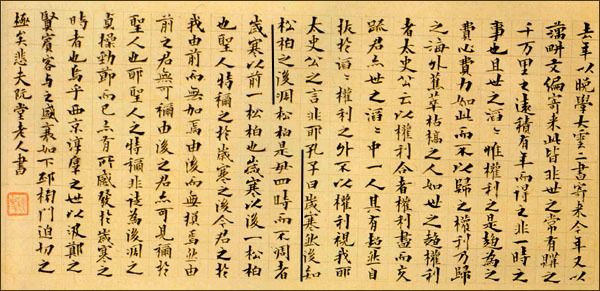 去年以晚學大雲二書寄來今年又以
藕畊文編寄來此皆非世之常有購之
千萬里之遠積有年而得之非一時之
事也且世之滔〻惟權利之是趨爲之
費心費力如此而不以歸之權利乃歸
之海外蕉萃枯槁之人如世之趨權利
者太史公云以權利合者權利盡而交
疏君亦世之滔〻中一人其有超然自
拔於滔〻權利之外不以權利視我耶
太史公之言非耶孔子曰歲寒然後知
松柏之後凋松柏是毌四時而不凋者
歲寒以前一松柏也歲寒以後一松柏
也聖人特稱之於歲寒之後今君之於
我由前而無加焉由後而無損焉然由
前之君無可稱由後之君亦可見稱於
聖人也耶聖人之特稱非徒爲後凋之
貞操勁節而已亦有所感發於歲寒之
時者也烏乎西京淳厚之世以汲鄭之
賢賓客與之盛衰如下邳榜門迫切之
極矣悲夫阮堂老人書